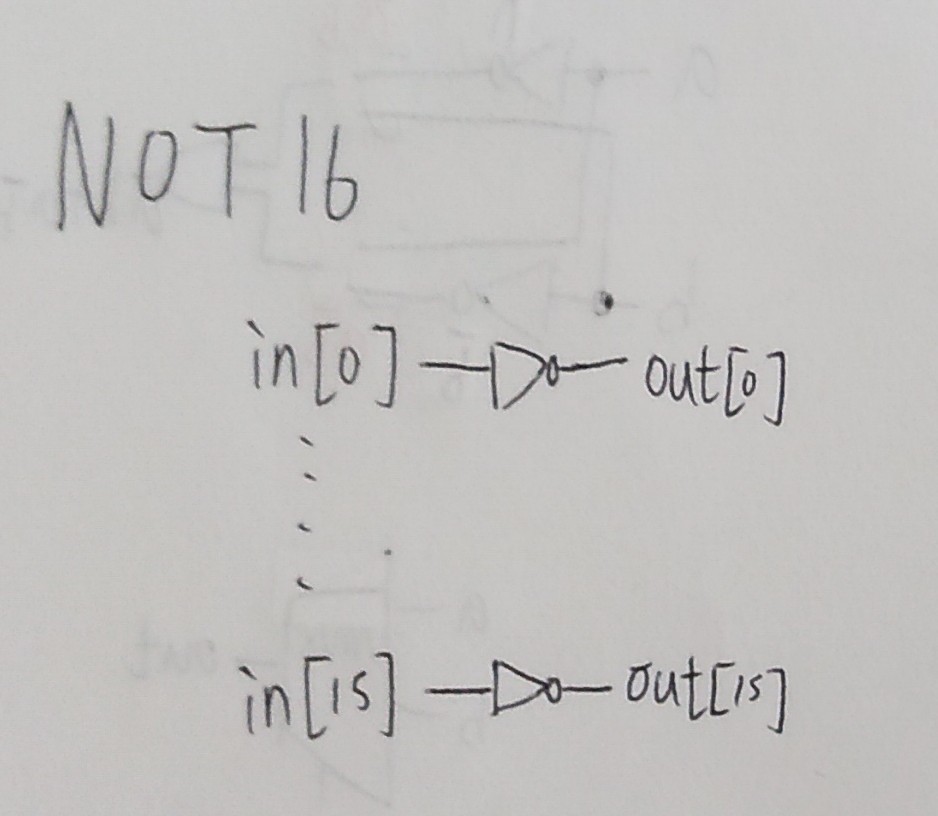 NOT 16
in[0] out[0]
in[15] out[15]